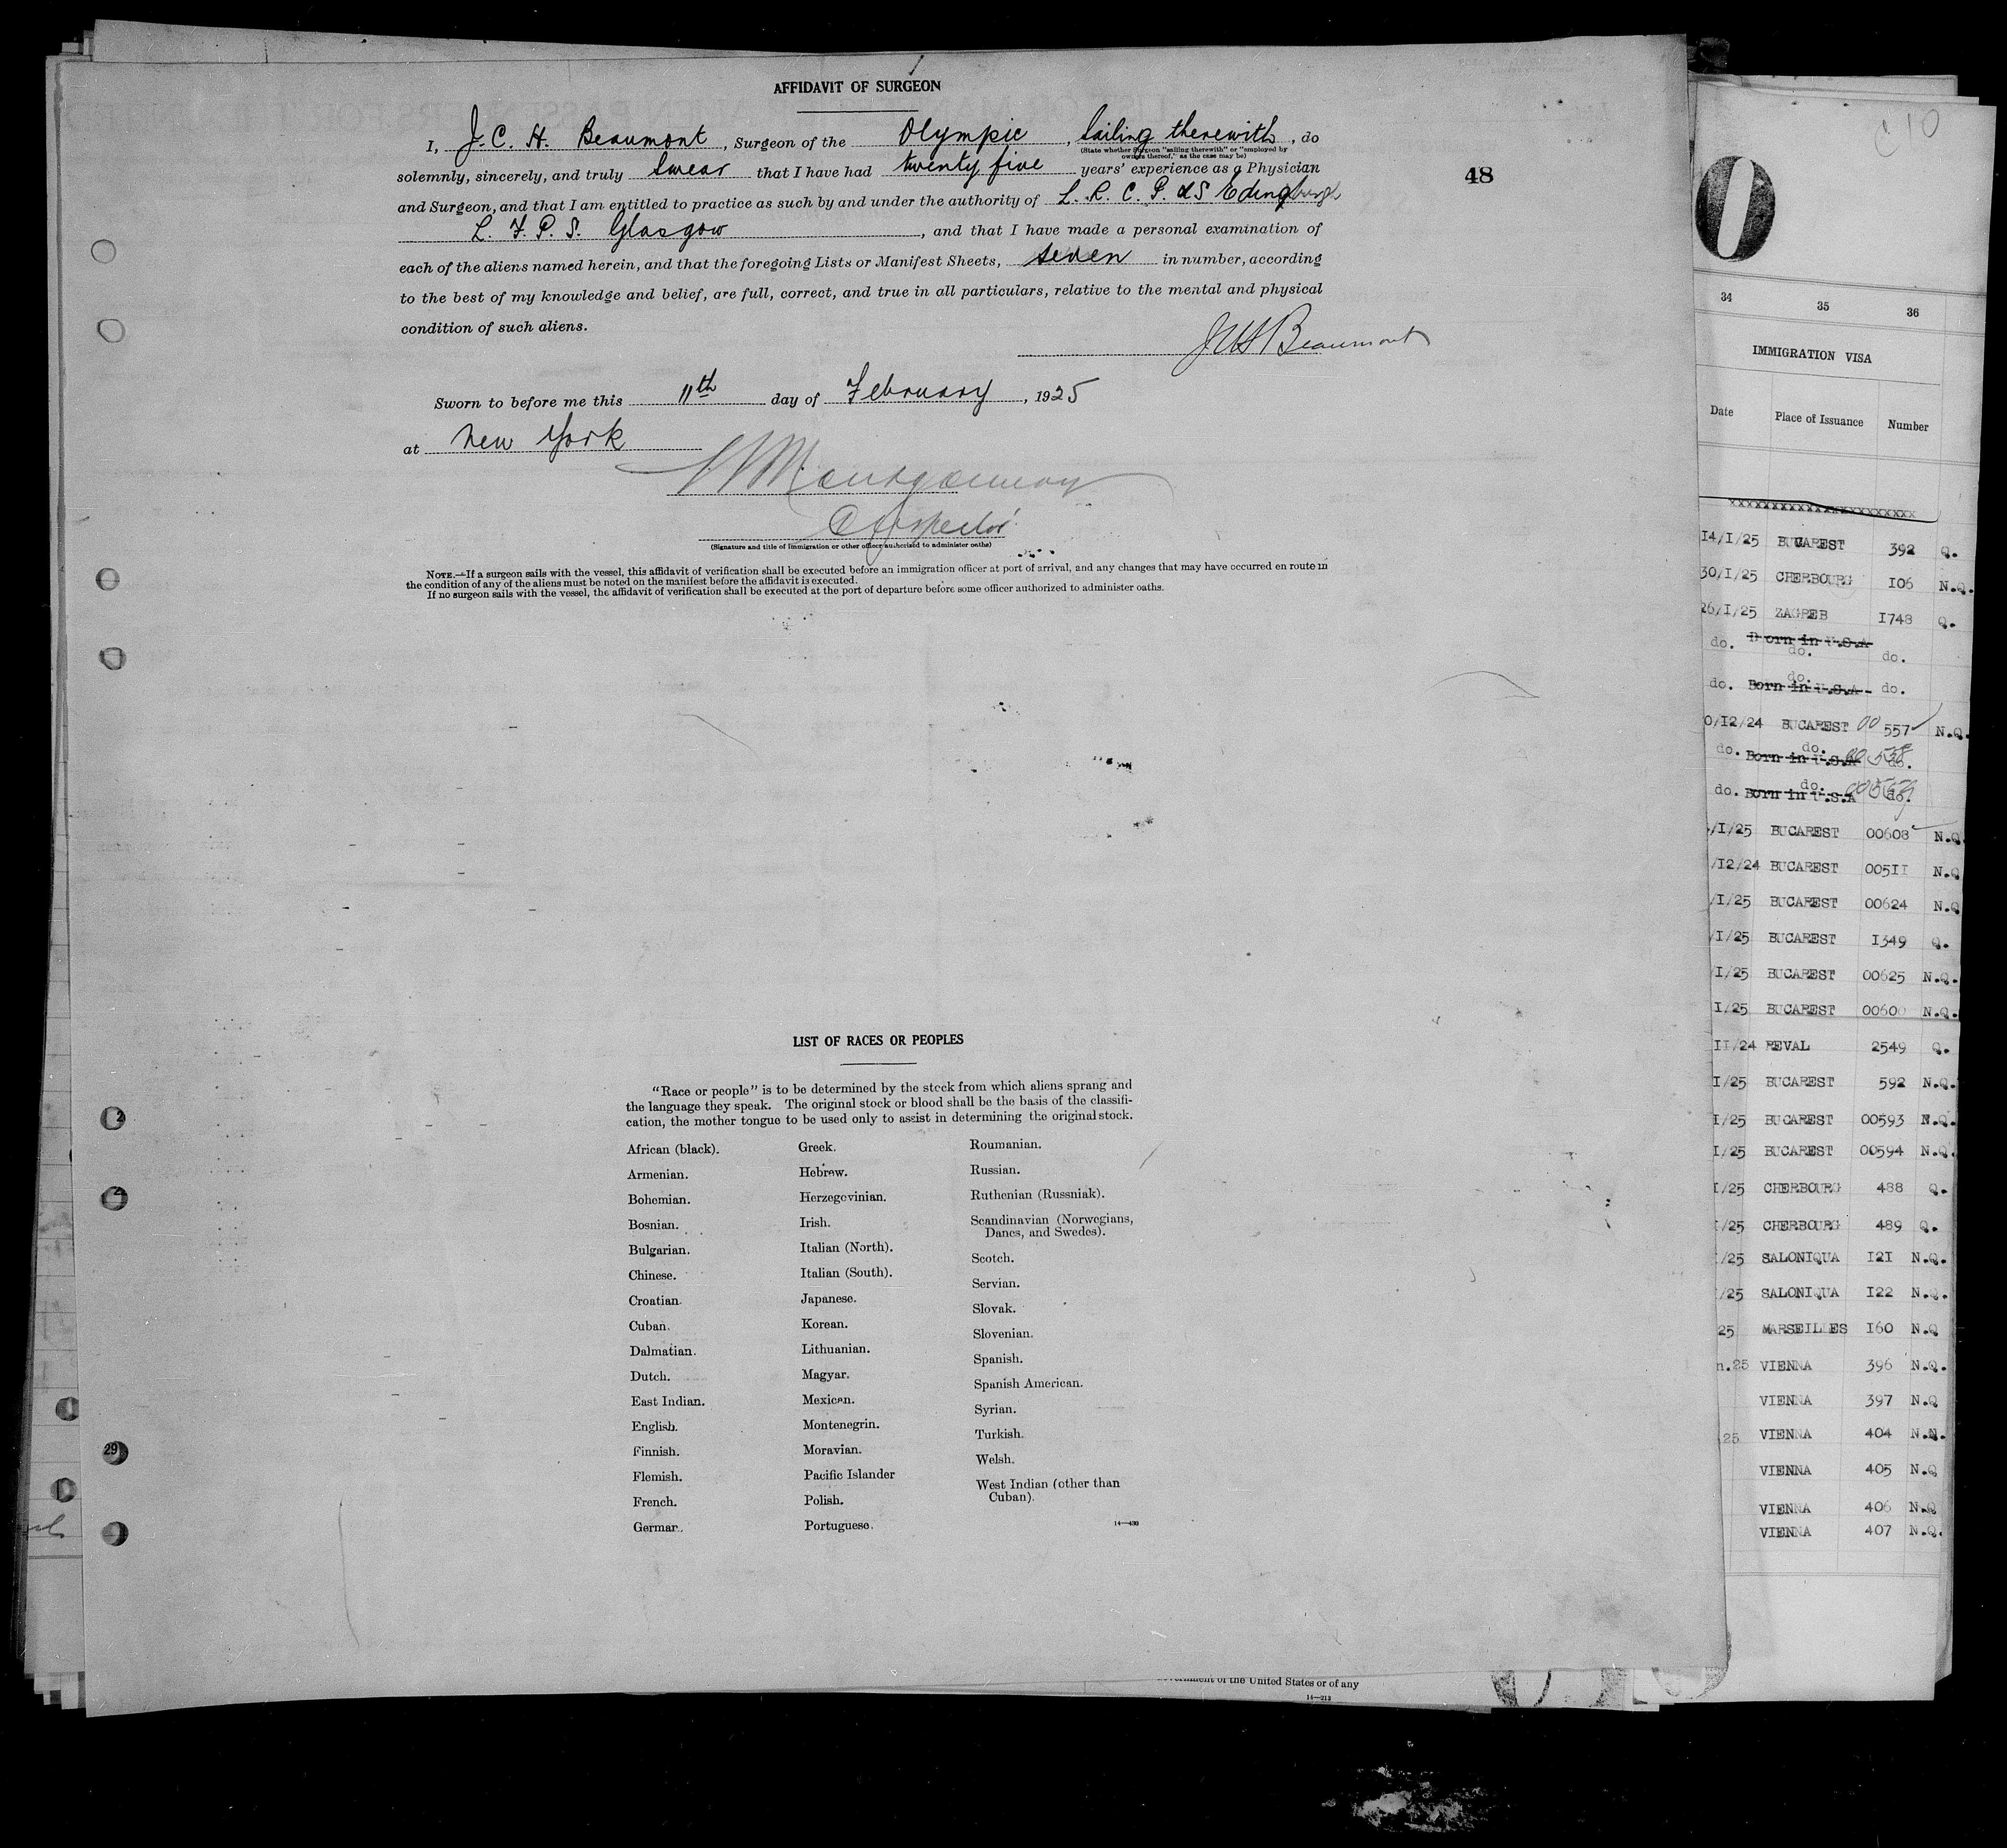 AFFIDAVIT OF SURGEON
I, J. C. H. Beaumont, Surgeon of the Olympic, Sailing therewith, do
(State whether Surgeon "sailing therewith" or "employed by
owners thereof," as the case may be)
solemnly, sincerely, and truly swear that I have had twenty five years' experience as a Physician
and Surgeon, and that I am entitled to practice as such by and under the authority of L. R. C. P. & S Edingburgh
L. F. P. S. Glasgow, and that I have made a personal examination of
each of the aliens named herein, and that the foregoing Lists or Manifest Sheets, seven in number, according
to the best of my knowledge and belief, are full, correct, and true in all particulars, relative to the mental and physical
condition of such aliens.
JCH Beaumont
Sworn to before me this 11th day of February, 1925
at New York
Montgomery
Inspector
(Signature and title of immigration or other officer authorized to administer oaths)
NOTE.—If a surgeon sails with the vessel, this affidavit of verification shall be executed before an immigration officer at port of arrival, and any changes that may have occurred en route in
the condition of any of the aliens must be noted on the manifest before the affidavit is executed.
If no surgeon sails with the vessel, the affidavit of verification shall be executed at the port of departure before some officer authorized to administer oaths.
48
LIST OF RACES OR PEOPLES
"Race or people" is to be determined by the stock from which aliens sprang and
the language they speak. The original stock or blood shall be the basis of the classifi-
cation, the mother tongue to be used only to assist in determining the original stock.
African (black).
Armenian.
Bohemian.
Bosnian.
Bulgarian.
Chinese.
Croatian.
Cuban.
Dalmatian.
Dutch.
East Indian.
English.
Finnish.
Flemish.
French.
German.
Greek.
Hebrew.
Herzegovinian.
Irish.
Italian (North).
Italian (South).
Japanese.
Korean.
Lithuanian.
Magyar.
Mexican.
Montenegrin.
Moravian.
Pacific Islander
Polish.
Portuguese.
Roumanian.
Russian.
Ruthenian (Russniak).
Scandinavian (Norwegians,
Danes, and Swedes).
Scotch.
Servian.
Slovak.
Slovenian.
Spanish.
Spanish American.
Syrian.
Turkish.
Welsh.
West Indian (other than
Cuban).
14—430
2
2
29
of the United States or of any
14—213
C 10
0
34 35 36
IMMIGRATION VISA
Date Place of Issuance Number
xxxxxxxxxxxxxxxxxxxxxxx
14/I/25 BUCAREST 392 Q.
30/I/25 CHERBOURG 106 N.Q.
26/I/25 ZAGREB 1748 Q.
do. Born in U.S.A do. do.
do. Born in U.S.A do. do.
0/12/24 BUCAREST 00 557 N.Q.
do. Born in U.S.A do. 00 558 do.
do. Born in U.S.A do. do.
/I/25 BUCAREST 00608 N.Q.
/I2/24 BUCAREST 00511 N.Q
/I/25 BUCAREST 00624 N.Q
/I/25 BUCAREST 1349 Q.
/I/25 BUCAREST 00625 N.Q.
I/25 BUCAREST 00600 N.Q.
II/24 REVAL 2549 Q.
I/25 BUCAREST 592 N.Q.
I/25 BUCAREST 00593 N.Q.
I/25 BUCAREST 00594 N.Q.
I/25 CHERBOURG 488 Q.
I/25 CHERBOURG 489 Q.
/25 SALONIQUA 121 N.Q.
/25 SALONIQUA 122 N.Q.
25 MARSEILLES 160 N.Q
n.25 VIENNA 396 N.Q.
VIENNA 397 N.Q
25 VIENNA 404 N.N.
VIENNA 405 N.Q
VIENNA 406 N.Q
VIENNA 407 N.Q.